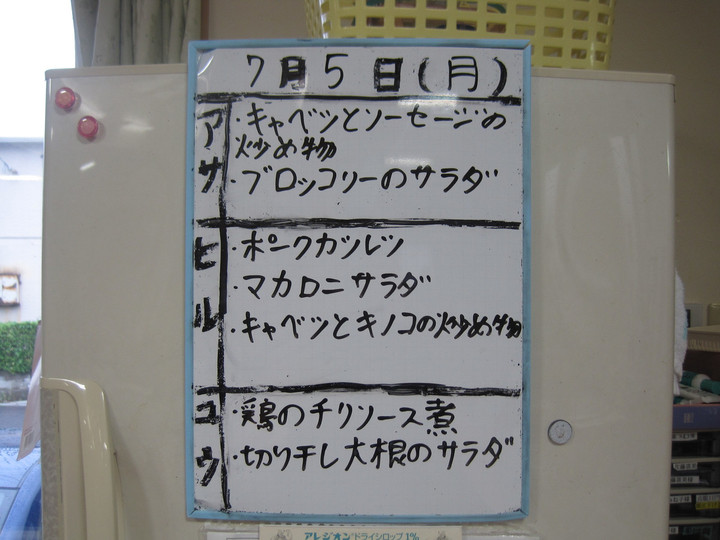 7月5日(月)
アサ
・キャベツとソーセージの
炒め物
・ブロッコリーのサラダ
ヒル
・ポークカツレツ
・マカロニサラダ
・キャベツとキノコの炒め物
ユウ
・鶏のチリソース煮
・切り干し大根のサラダ
アレジオンドライシロップ1%